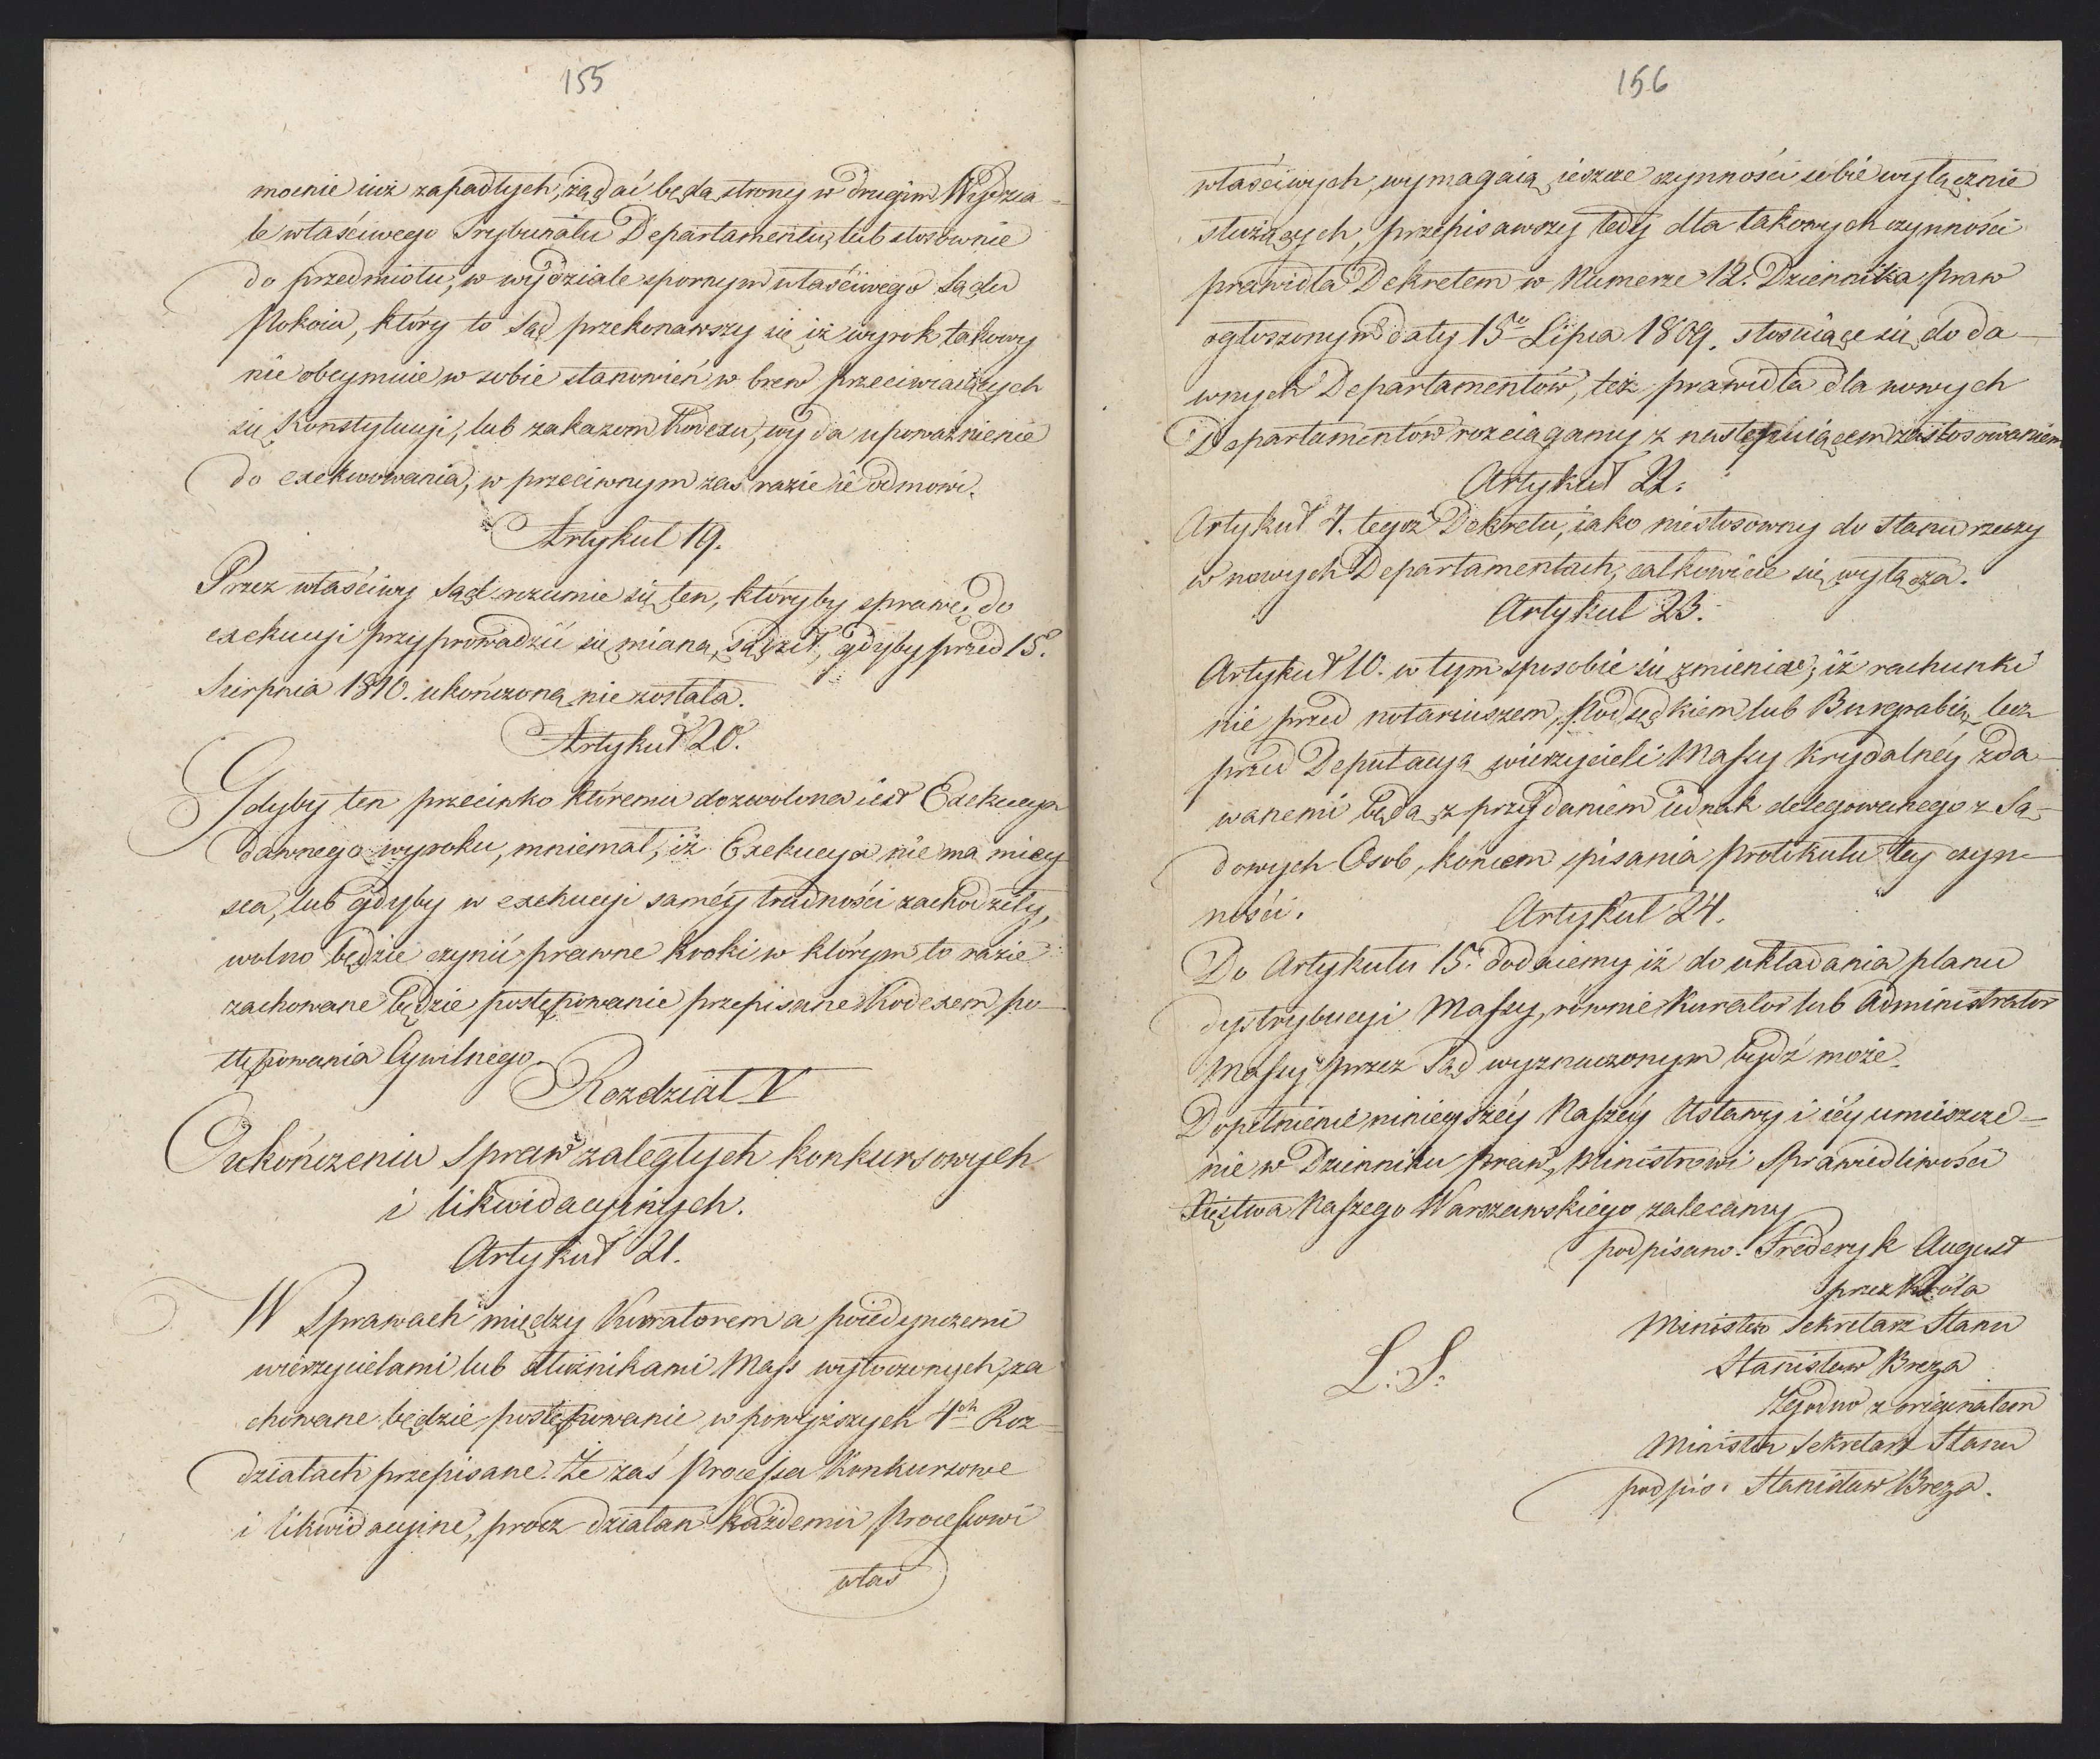 155
mocnie iuż zapadłych, żądać będą strony w drugim Wydzia=
le właściwego Trybunału Departamentu, lub stosownie
do przedmiotu, w wydziale spornym właściwego Sądu
Pokoiu, który to Sąd przekonawszy się iż wyrok takowy
nie obeymuie w sobie stanowień w brew przeciwiaiących
się Konstytucyi, lub zakazom Kodexu, wyda upoważnienie
do exekwowania, w przeciwnym zaś razie ie odmowi.
Artykuł 19.
Przez właściwy Sąd rozumie się ten, któryby sprawę, do
exekucyi przyprowadzić się mianą, sądził, gdyby przed 15.
Sierpnia 1810. ukończoną nie została.
Artykuł 20.
Gdyby ten przeciwko któremu dozwolona iest Exekucya
dawnego wyroku, mniemał, iż Exekucya nie ma miey
sca, lub gdyby w exekucyi saméy trudności zachodziły,
wolno będzie czynić prawne kroki w którym to razie
zachowane będzie postępowanie przepisane Kodexem po-
stępowania Cywilnego.
Rozdział V
O ukończeniu Spraw zaległych konkursowych
i likwidacyinych.
Artykuł 21.
W Sprawach między Kuratorem a poiedynczemi
wierzycielami lub dłużnikami Mass wytoczonych, za
chowane będzie postępowanie w powyższych 4ch Roz=
działach przepisane. Że zaś Processa Konkursowe
i likwidacyine, procz działan każdemu Processowi
właś
156
właściwych, wymagaią ieszcze czynności sobie wyłącznie
służących, przepisawszy tedy dla takowych czynności
prawidła Dekretem w Numerze 12. Dziennika praw
ogłoszonym daty 15go Lipca 1809. stosuiące się do da—
wnych Departamentów, też prawidła dla nowych
Departamentów rozciągamy z następuiącem zastosowaniem
Artykuł 22.
Artykuł 4. tegoż Dekretu, iako niestosowny do stanu rzeczy
w nowych Departamentach, całkowicie się wyłącza.
Artykuł 23.
Artykuł 10. w tym sposobie się zmienia; iż rachunki
nie przed notariuszem, Podsędkiem lub Burgrabią lecz
przed Deputacyą wierzycieli Massy Krydalnéy zda—
wanemi będą, z przydaniem iednak delegowanego z Są-
dowych Osob, koncem spisania Protokułu tey czyn—
ności.
Artykuł 24.
Do Artykułu 15. dodaiemy iż do układania planu
dystrybucyi Massy, równie Kurator lub Administrator
Massy przez Sąd wyznaczonym bydź może.
Dopełnienie ninieyszéy Naszéy Ustawy i iéy umieszcze=
nie w Dzienniku praw, Ministrowi Sprawiedliwości
Xięstwa Naszego Warszawskiego zalecamy
podpisano. Frederyk August
przez Króla
Minister Sekretarz Stanu
L. S.
Stanisław Breza
Zgodno z oryginałem
Minister Sekretarz Stanu
podpis. Stanisław Breza.